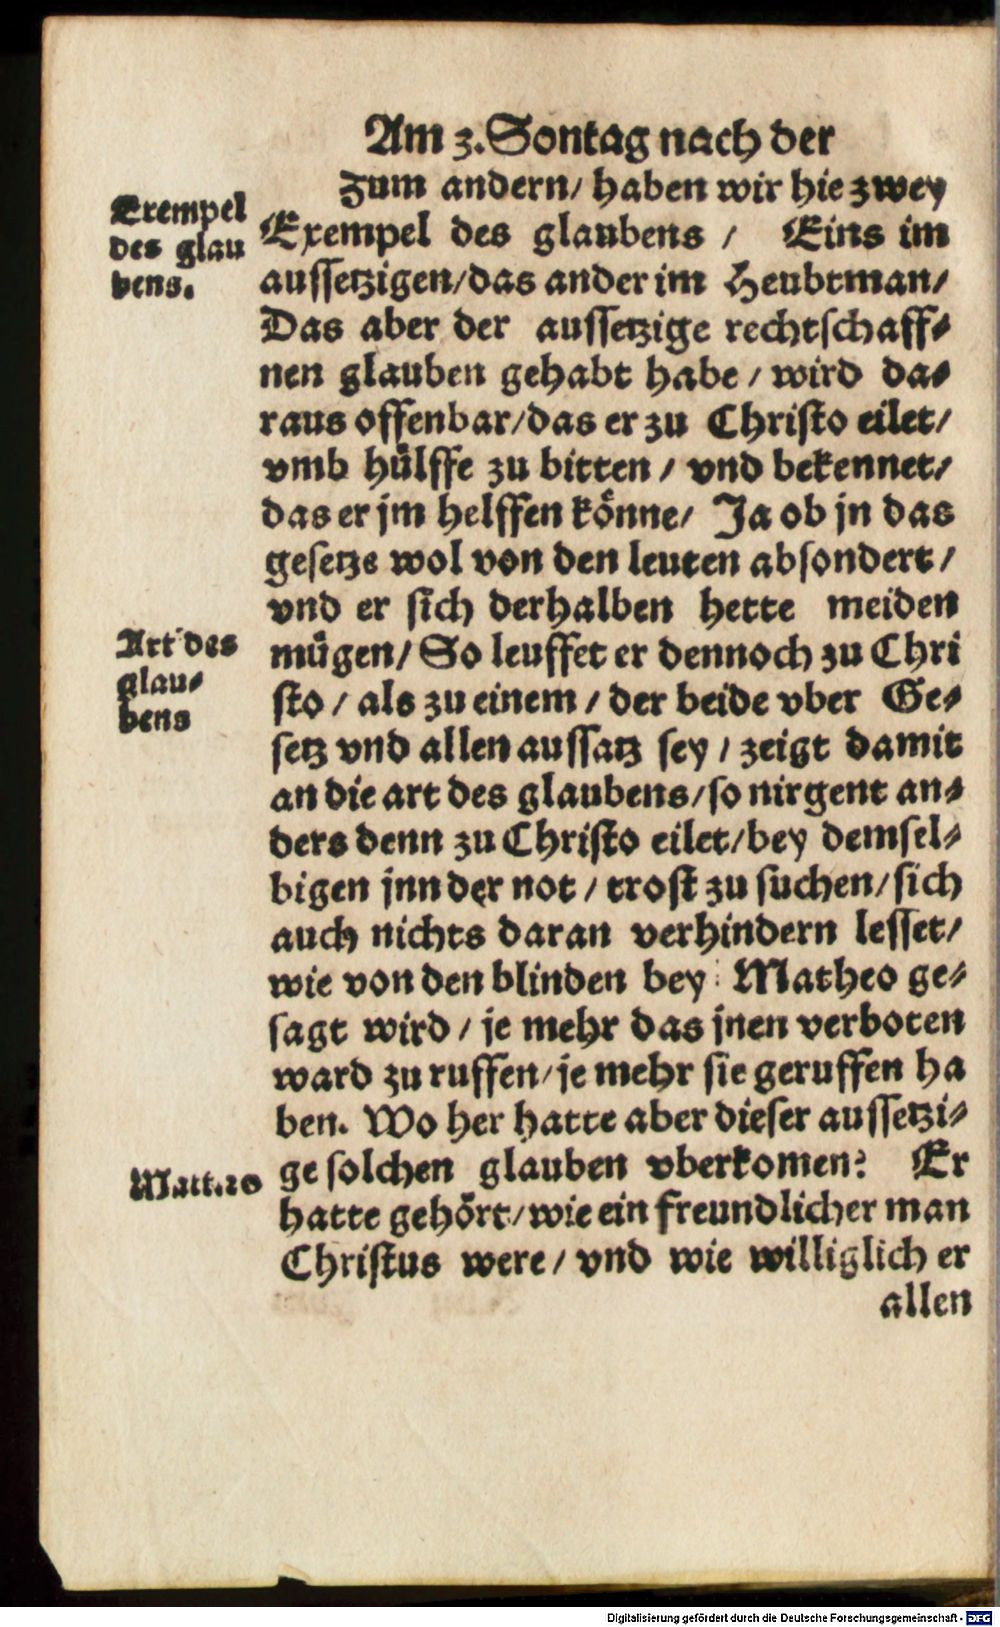 Am 3. Sontag nach der
Zum andern / haben wir hie zwey
Exempel des glaubens / Eins im
aussetzigen / das ander im Heubtman /
Das aber der aussetzige rechtschaff⸗
nen glauben gehabt habe / wird da⸗
raus offenbar / das er zu Christo eilet /
vmb hülffe zu bitten / vnd bekennet /
das er jm helffen könne / Ja ob jn das
gesetze wol von den leuten absondert /
vnd er sich derhalben hette meiden
mügen / So leuffet er dennoch zu Chri
sto / als zu einem / der beide vber Ge⸗
setz vnd allen aussatz sey / zeigt damit
an die art des glaubens / so nirgent an⸗
ders denn zu Christo eilet / bey demsel⸗
bigen jnn der not / trost zu suchen / sich
auch nichts daran verhindern lesset /
wie von den blinden bey Matheo ge⸗
sagt wird / je mehr das jnen verboten
ward zu ruffen / je mehr sie geruffen ha
ben. Wo her hatte aber dieser aussetzi⸗
ge solchen glauben vberkomen? Er
hatte gehört / wie ein freundlicher man
Christus were / vnd wie williglich er
allen
Exempel
des glau
bens.
Art des
glau⸗
bens
Matt. 20
Digitalisierung gefördert durch die Deutsche Forschungsgemeinschaft - DFG